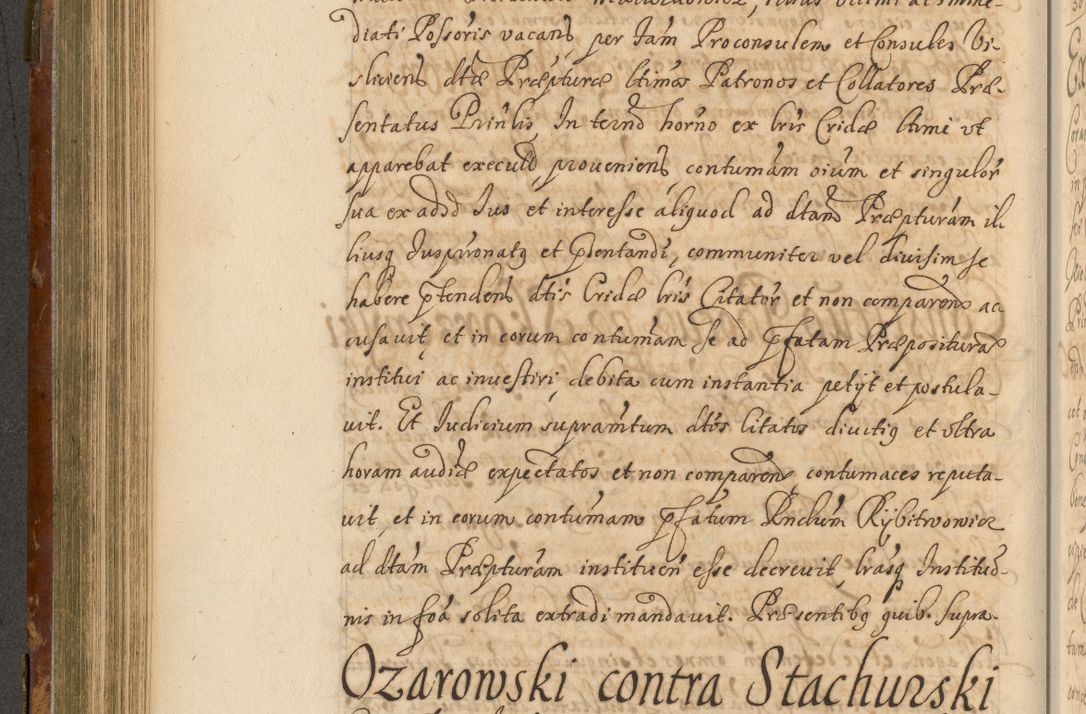 diati Possoris vacans, per Iam Proconsulem et Consules Vi-
sliciens dtæ Præpturæ ltimos Patronos et Collatores Præ-
sentatus Prinlis, In termo horno ex lris Cridæ ltimi ut
apparebat executo, proveniens contumam oium et singulor
sua ex addo Ius et interesse aliquod ad dtam Præpturam il-
liusq Iuspronatq et pntandi, communiter vel divisim se
habere ptendens dtis Cridæ lris Citator et non comparens ac-
cusavit, et in eorum contumam se ad pfatam Præposituram
institui ac investiri, debita cum instantia petijt et postula-
vit. Et Iudicium supramtum dtos Citatos diutiq et ultra
horam audiæ expectatos et non comparens contumaces reputa-
vit, et in eorum contumam pfatum Pnchum Rybitwowicz
ad dtam Præpturam instituen esse decrevit, lrasq Institu-
nis in foa solita extradi mandavit. Præsentibq quib. supra.
Ozarowski contra Stachurski